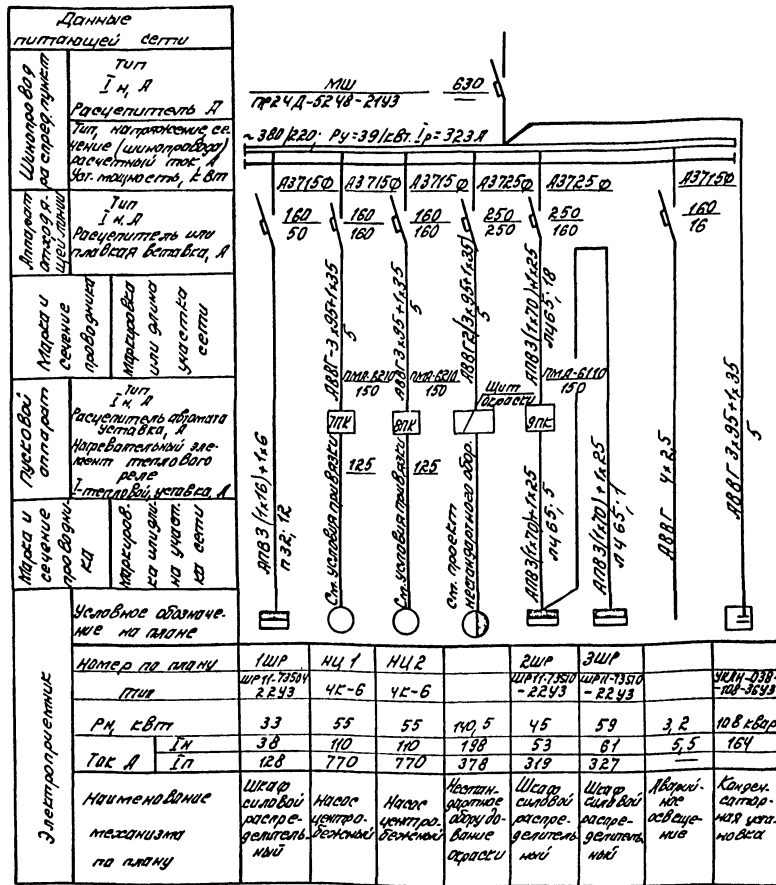 Данные
питающей сети
Шинопровод
распред. пункт
Тип
Iн, А
Расцепитель А
Тип, напряжение, се-
чение (шинопровода)
расчетный ток, А
Уст. мощность, кВт
Аппарат
отходя-
щей линии
Тип
Iн, А
Расцепитель или
плавкая вставка, А
Марка и
сечение
проводника
Маркировка
или длина
участка
сети
Пусковой
аппарат
Тип
Iн, А
Расцепитель автомата
уставка, А
Нагревательный эле-
мент теплового
реле
I-тепловой, уставка, А
Марка и
сечение
проводни-
ка
Маркиров-
ка или дли-
на участ-
ка сети
МШ
ПР24Д-5248-21У3
630
~380/220; Ру=391кВт. Iр=323А
А3715Ф
А3715Ф
А3715Ф
А3725Ф
А3725Ф
А3715Ф
160
50
160
160
160
160
250
250
250
160
160
16
АПВ 3(1×16)+1×6
П32; 12
АВВГ-3×95+1×35
5
АВВГ-3×95+1×35
5
АВВГ2(3×95+1×35)
5
АПВ3(1×70)+1×25
ЛЦ65; 18
ПМА-6210
150
ПМА-6210
150
Щит
окраски
ПМА-6110
150
7ПК
8ПК
9ПК
125
125
См. условия привязки
См. условия привязки
См. проект
нестандартного обор.
АПВ3(1×70)+1×25
ЛЦ65; 5
АПВ3(1×70)+1×25
ЛЦ65; 1
АВВГ 4×2,5
АВВГ 3×95+1×35
5
Электроприемник
Условное обозначе-
ние на плане
Номер по плану
1ШР НЦ1 НЦ2 2ШР 3ШР
Тип
ШР11-73504
-22У3
4К-6 4К-6
ШР11-73510
-22У3
ШР11-73510
-22У3
Рн, кВт 33 55 55 140,5 45 59 3,2 108 квар
Ток А
Iн 38 110 110 198 53 61 5,5 164
Iп 128 770 770 378 319 327 —
Наименование
механизма
по плану
Шкаф
силовой
распре-
делитель-
ный
Насос
центро-
бежный
Насос
центро-
бежный
Нестан-
дартное
оборудо-
вание
окраски
Шкаф
силовой
распре-
делитель-
ный
Шкаф
силовой
распре-
делитель-
ный
Аварий-
ное
освеще-
ние
Конден-
сатор-
ная уста-
новка